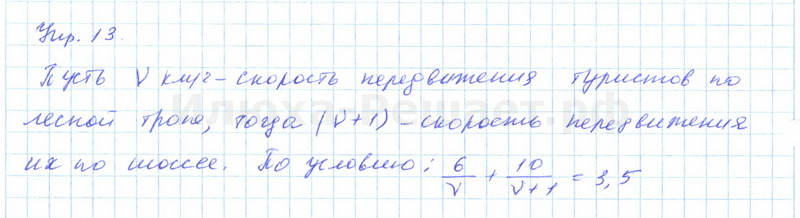 Упр. 13.
Пусть V км/ч - скорость передвижения туристов по
лесной тропе, тогда (V+1) - скорость передвижения
их по шоссе. По условию: 6/V + 10/V+1 = 3,5
Илюха-Решает.рф